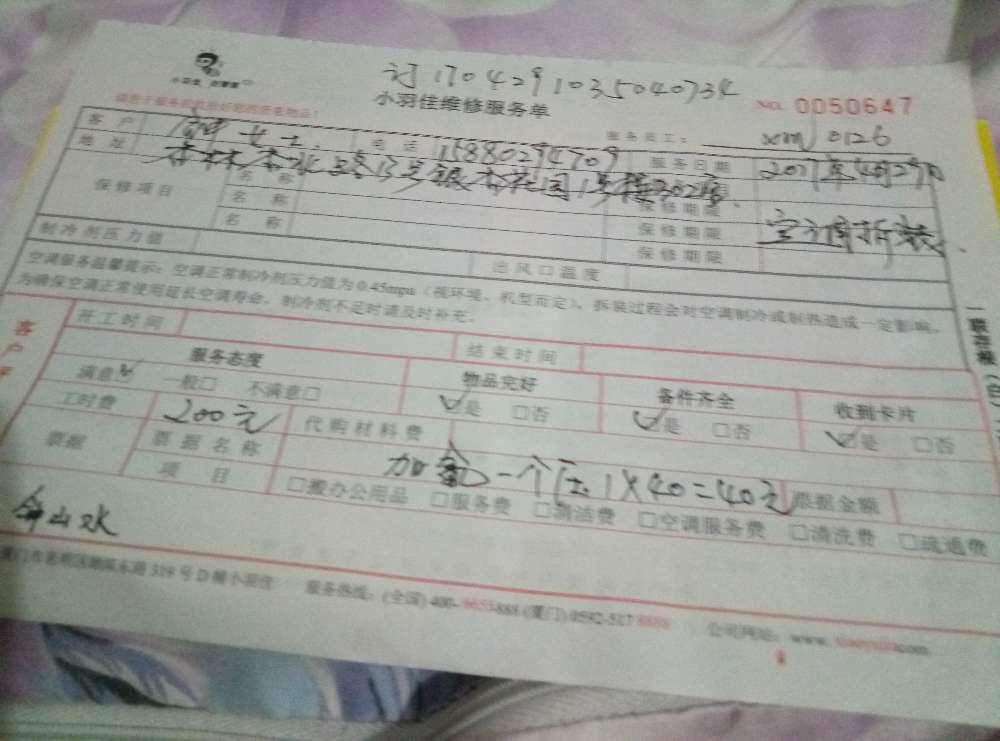 订1704291035040734
小羽佳
小羽佳维修服务单 No. 0050647
服务员工: xm 0126
客户 女士 电话 15880294909 服务日期 2017年4月29日
地址 杏林杏北路13号银杏花园1号楼302室
保修项目 名称 保修期限 空调拆装
名称 保修期限
名称 保修期限
制冷剂压力值 出风口温度
空调服务温馨提示:空调正常制冷剂压力值为0.45mpa(视环境、机型而定)。拆装过程会对空调制冷或制热造成一定影响,
为确保空调正常使用延长空调寿命,制冷剂不足时请及时补充。
开工时间 结束时间
服务态度 物品完好 备件齐全 收到卡片
满意☑ 一般□ 不满意□ ☑是 □否 ☑是 □否 ☑是 □否
工时费 200元 代购材料费
票据 票据名称 加氟一个压 1×40=40元 票据金额
项目 □搬办公用品 □服务费 □清洁费 □空调服务费 □清洗费 □疏通费
钟山水
319号D幢小羽佳 服务热线:(全国)400- 888 (厦门)0592-5178888 公司网址:www.